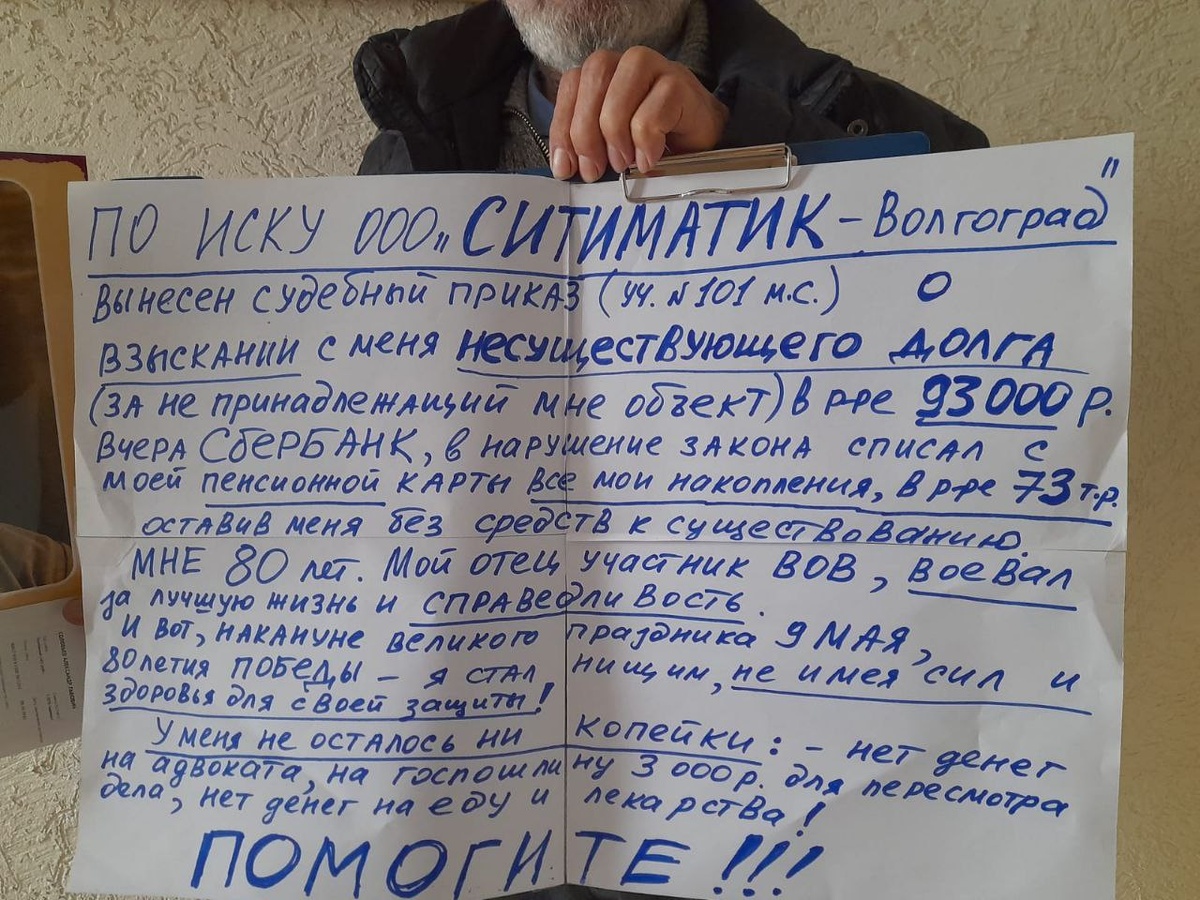 ПО ИСКУ ООО „СИТИМАТИК – Волгоград"
Вынесен судебный приказ (уч. №101 м.с.) О
взыскании с меня несуществующего долга
(за не принадлежащий мне объект) в р-ре 93 000 р.
Вчера СБЕРБАНК, в нарушение закона списал с
моей пенсионной карты все мои накопления, в р-ре 73 т.р.
оставив меня без средств к существованию.
Мне 80 лет. Мой отец участник ВОВ, воевал
за лучшую жизнь и справедливость.
И вот, накануне великого праздника 9 МАЯ,
80летия ПОБЕДЫ – я стал нищим, не имея сил и
здоровья для своей защиты!
У меня не осталось ни копейки: – нет денег
на адвоката, на госпошлину 3 000р. для пересмотра
дела, нет денег на еду и лекарства!
ПОМОГИТЕ!!!